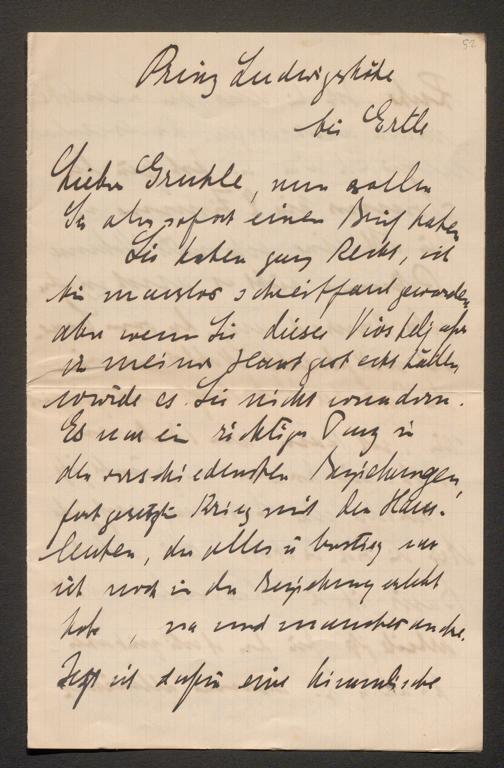 52
Prinz Ludwigshöhe
bei Ertle
Lieber Gruhle, nun wollen
Sie aber sofort einen Brief haben
Sie haben ganz Recht, ich
bin masslos schreibfaul geworden
aber wenn Sie dieses Vierteljahr
in meiner Haut gesteckt hätten,
würde es Sie nicht wundern.
Es war ein richtiger in
den verschiedensten Beziehungen
fortgesetzter Krieg mit den Haus-
leuten, der alles was
ich noch in der Beziehung erlebt
habe, na und manches andre.
Jetzt ist dafür eine himmlische